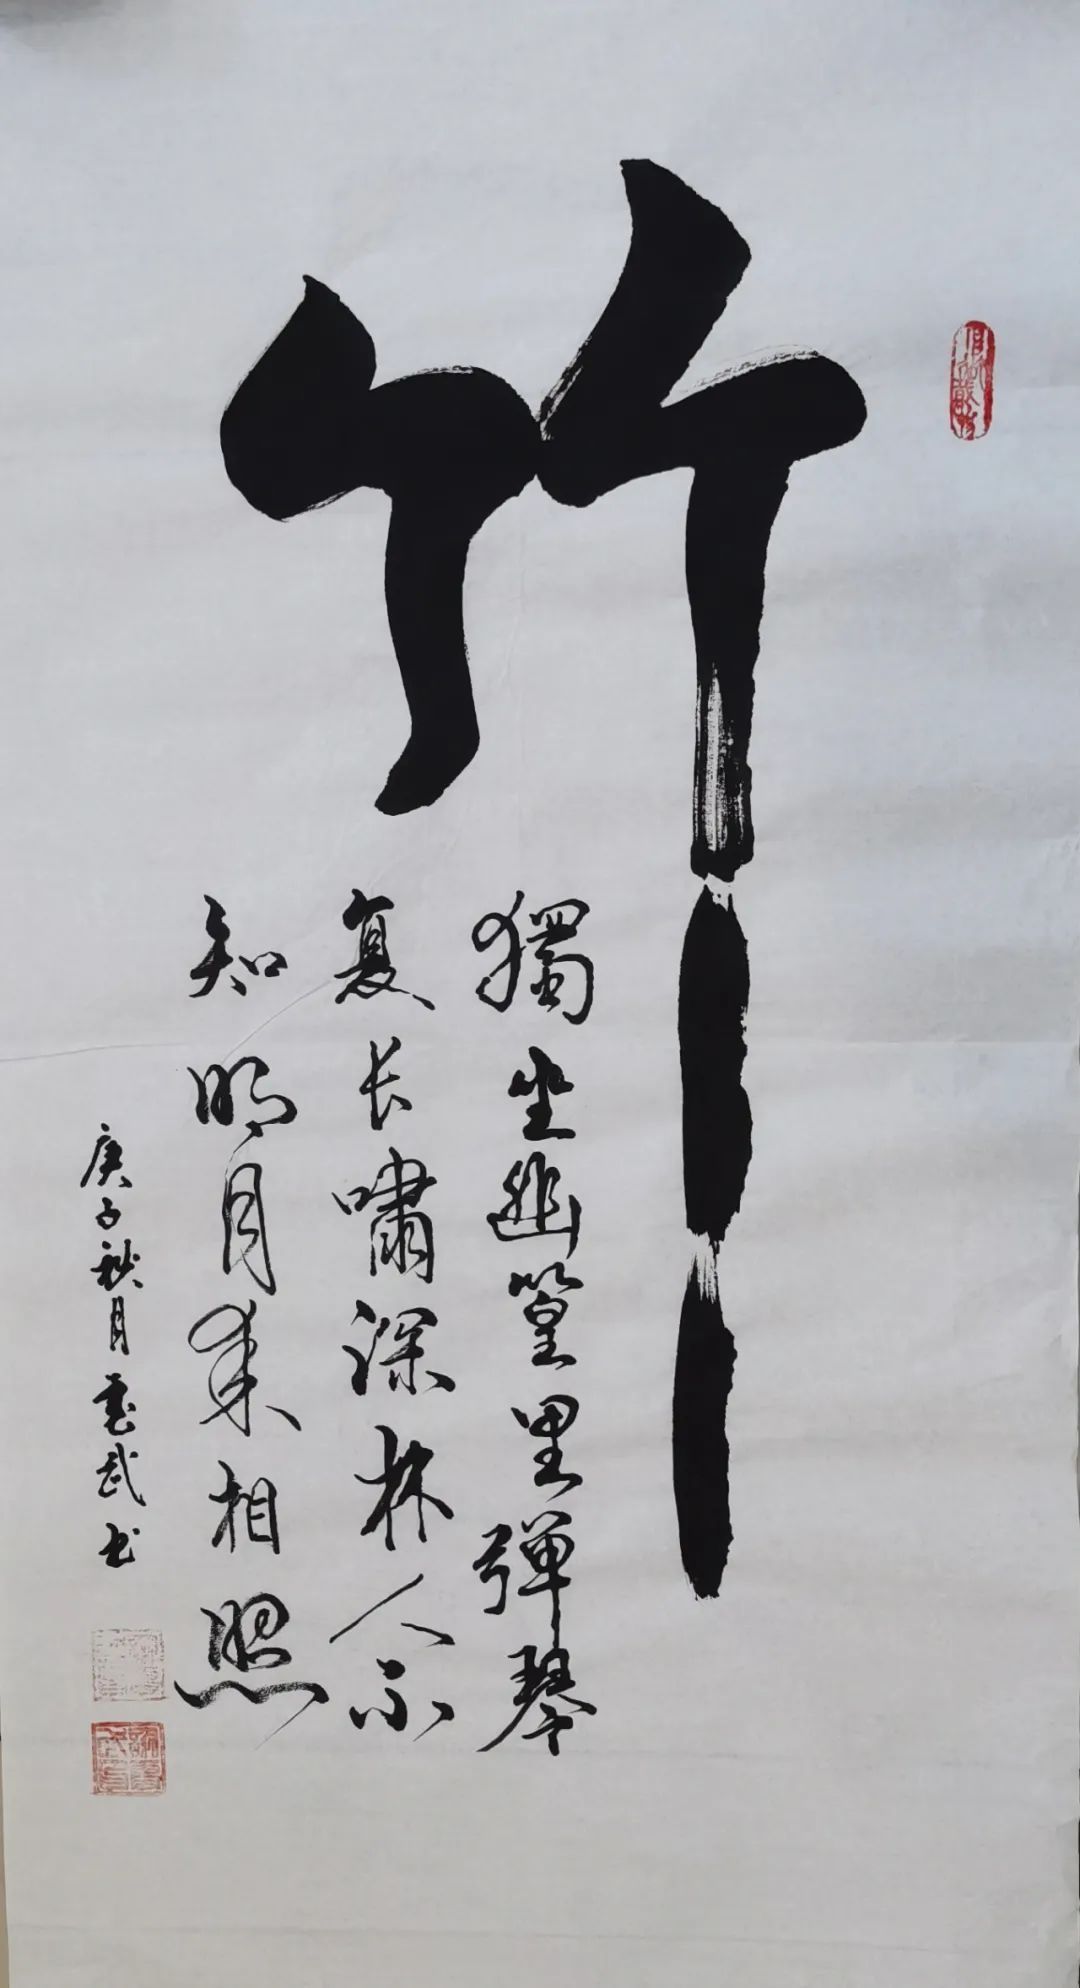 竹
獨坐幽篁里彈琴
复长嘯深林人不
知明月来相照
庚子秋月 武书